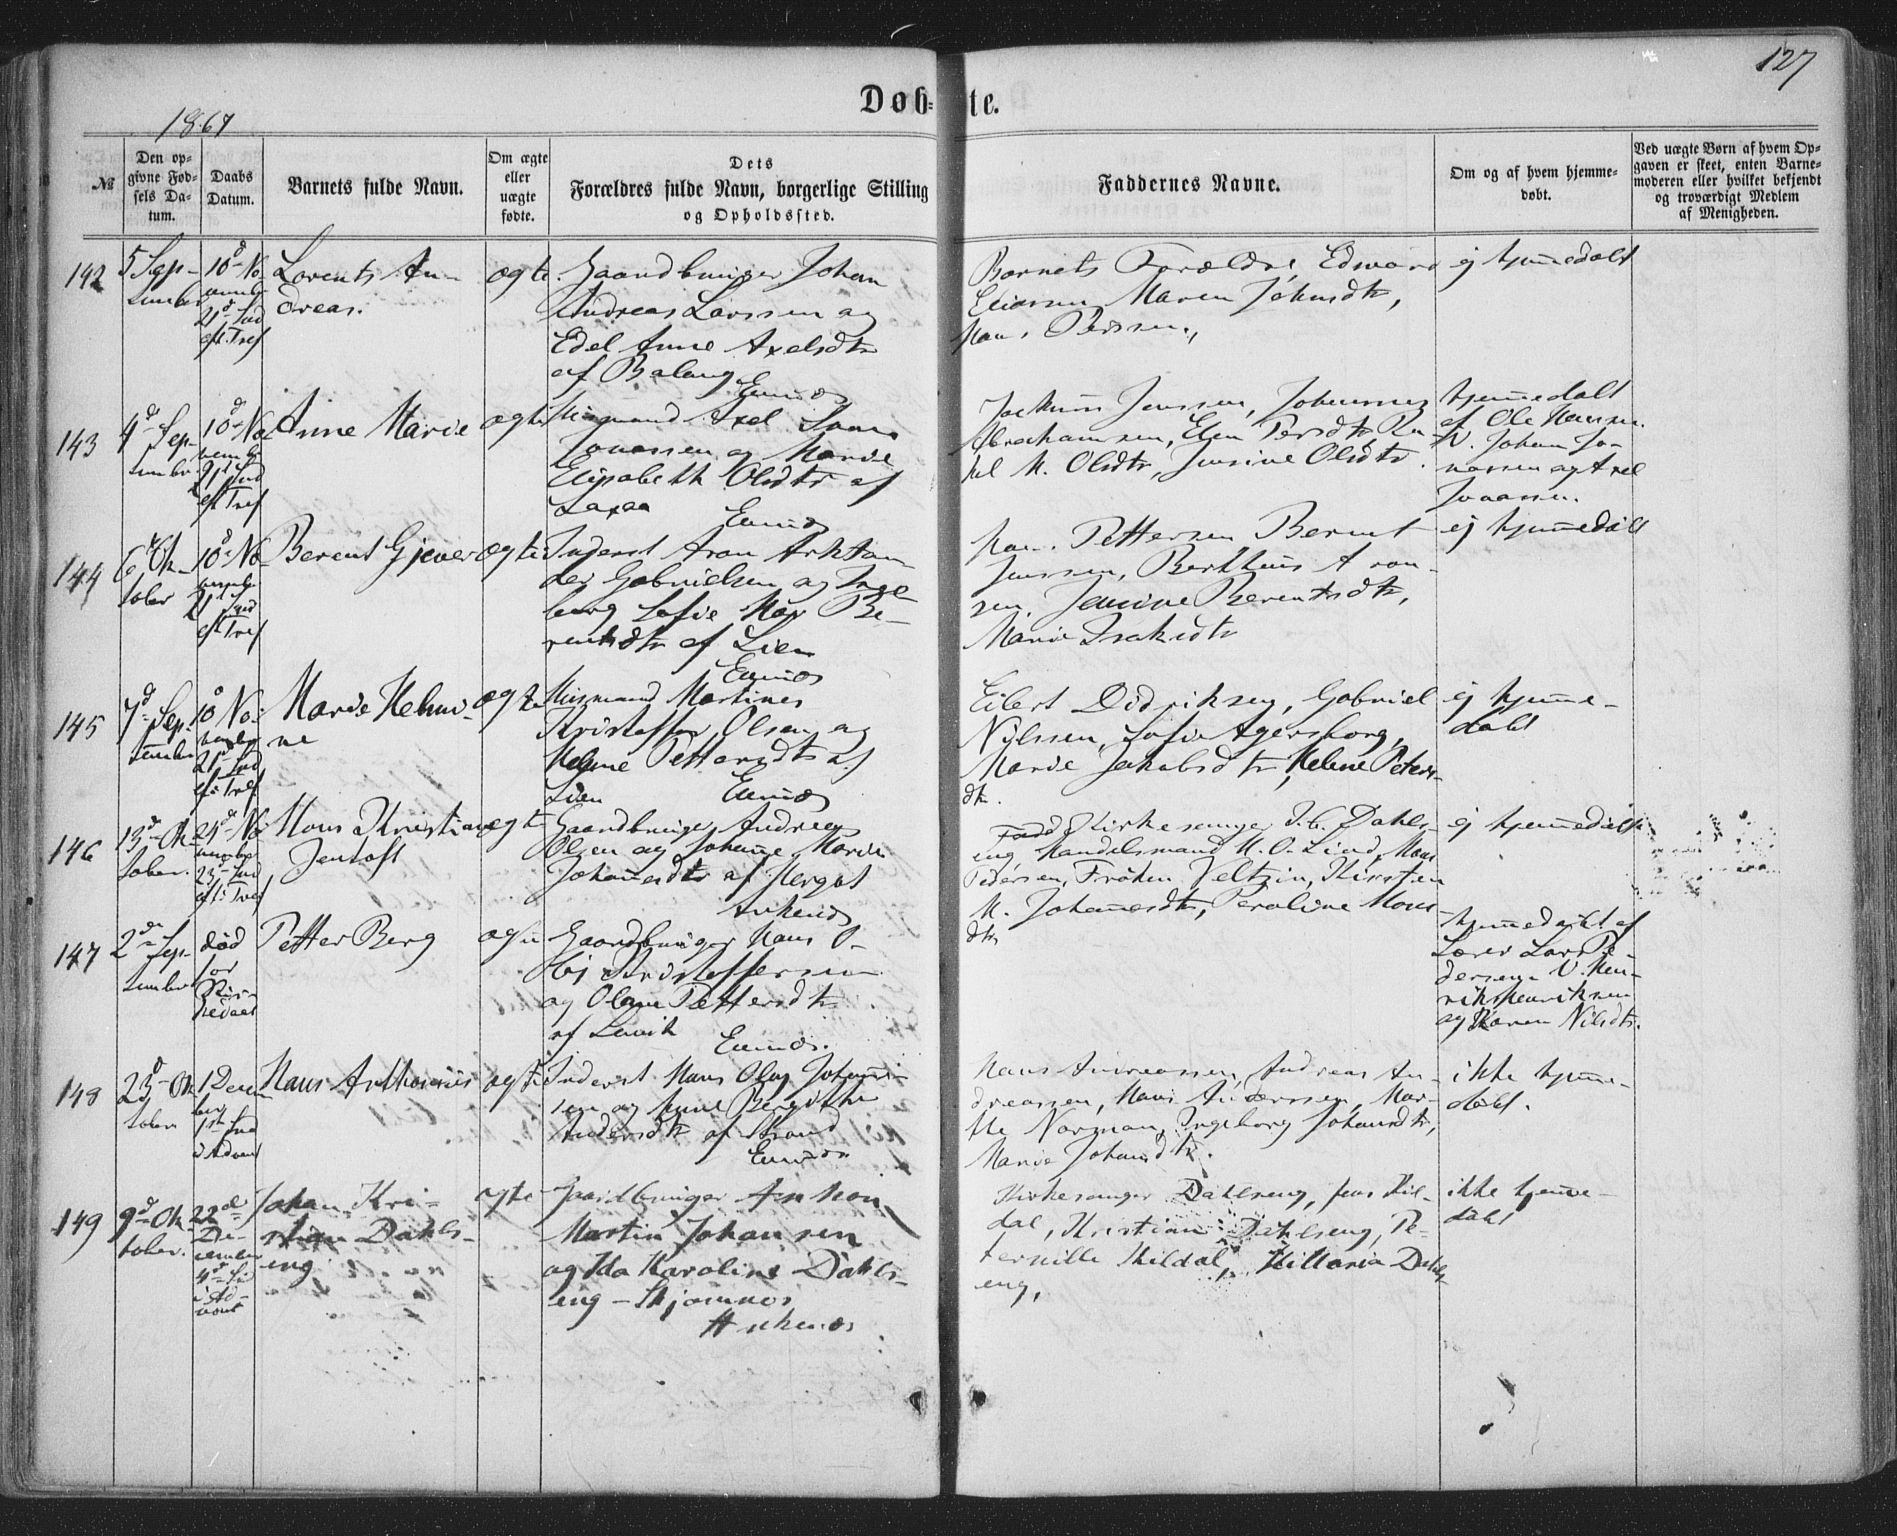 127
Døb-
te.
1867
№
Den op-
givne Fød-
sels Da-
tum.
Daabs
Datum.
Barnets fulde Navn.
Om ægte
eller
uægte
fødte.
Dets
Forældres fulde Navn, borgerlige Stilling
og Opholdssted.
Faddernes Navne.
Om og af hvem hjemme-
døbt.
Ved uægte Børn af hvem Op-
gaven er skeet, enten Barne-
moderen eller hvilket bekjendt
og troværdigt Medlem
af Menigheden.
142
5 Sep-
tember
10d No-
vember
21d Sød
eft. Tref
Lorents An-
dreas.
ægte
Gaardbruger Johan
Andreas Larssen og
Edel Anne Axelsdtr
af Balang
Evenæs
Barnets Forældre, Edward
Eliassen Maren Johnsdtr,
Hans Perssen.,
ej hjemmedøbt
143
4d Sep-
tember
10d No-
vember
21d Sød
eft Tref
Anne Marie
ægte
Husmand Axel
Jonassen og Marie
Elisabeth Olsdtr af
Laxaa
Evenæs
Jenssen, Johannes
Abrahamsen, Elen Persdtr Ra-
kel M. Olsdtr, Jensine Olsdtr.
hjemmedøbt
af Ole Hansen.
V. Johan Jo-
nassen og Axel
Jonassen.
144
6d Ok-
tober
10d No-
vember
21d Sød
eft Tref
Berent Gjæver
ægte
Inderst Aron
Gabrielsen og Inge
borg Sofie Mar Be-
rentsdtr af Lien
Evenæs
Hans Pettersen Berent
Jenssen, Bertheus Aron-
sen, Jensine Berentsdtr,
Marie Isaksdtr
ej hjemmedøbt
145
7d Sep-
tember
10 No-
vember
21d Sød
eft Tref
Marie Helmi-
ne
ægte
Husmand Martines
Kristoffer Olsen og
Petersdtr af
Lien
Evenæs
Eilert Didriksen, Gabriel
Nilssen, Sofie Agersborg,
Marie Jakobsdtr, Helene Peters-
dtr.
ej hjemme-
døbt
146
13d Ok-
tober.
24d No-
vember
23d Sød
eft: Tref
Hans Kristian
Jentoft
ægte
Gaardbruger Andreas
Olsen og Johanne Marie
Johannesdtr af Hergot
Ankenes
Kirkesanger I. C. Dahls-
eng, Handelsmand H. O. Lind, Hans
Pedersen, Frøken Veltzin, Kirsten
M. Johannesdtr, Peroline Hans-
dtr
ej hjemmedøbt
147
2den Sep-
tember
død
før
Kir-
kedaab
Petter Berg
ægte
Gaardbruger Hans O-
Kristoffersen
og Olene Pettersdtr
af Lenvik
Evenæs.
hjemmedøbt af
Lærer Lars Pe-
dersen V. Hen-
rik Henriksen
og Karen Nilsdtr.
148
23d Ok-
tober
1 Decem-
ber
1ste Sød
i Advent
Hans Anthonius
ægte
Inderst Hans Olay Johanne-
sen og Anne Bergitte
Andersdtr af Strand
Evenæs
Hans Andreassen, Andreas An-
dreassen, Hans Anderssen, Mar-
the Norman, Ingeborg Johansdtr,
Marie Johansdtr.
ikke hjemme-
døbt.
149
9d Ok-
tober.
22d
De-
cember
4de Sød
i Ad-
vent
Johan Kri-
stian Dahls-
eng
ægte
Gaardbruger Anthon
Martin Johansen
og Ida Karoline Dahls-
eng - Skjomnæs
Ankenæs
Kirkesanger Dahlseng, Jens Kil-
dal, Kristian Dahlseng, Pe-
ternille Kildal, Hillaria Dahls-
eng,
ikke hjemme-
døbt